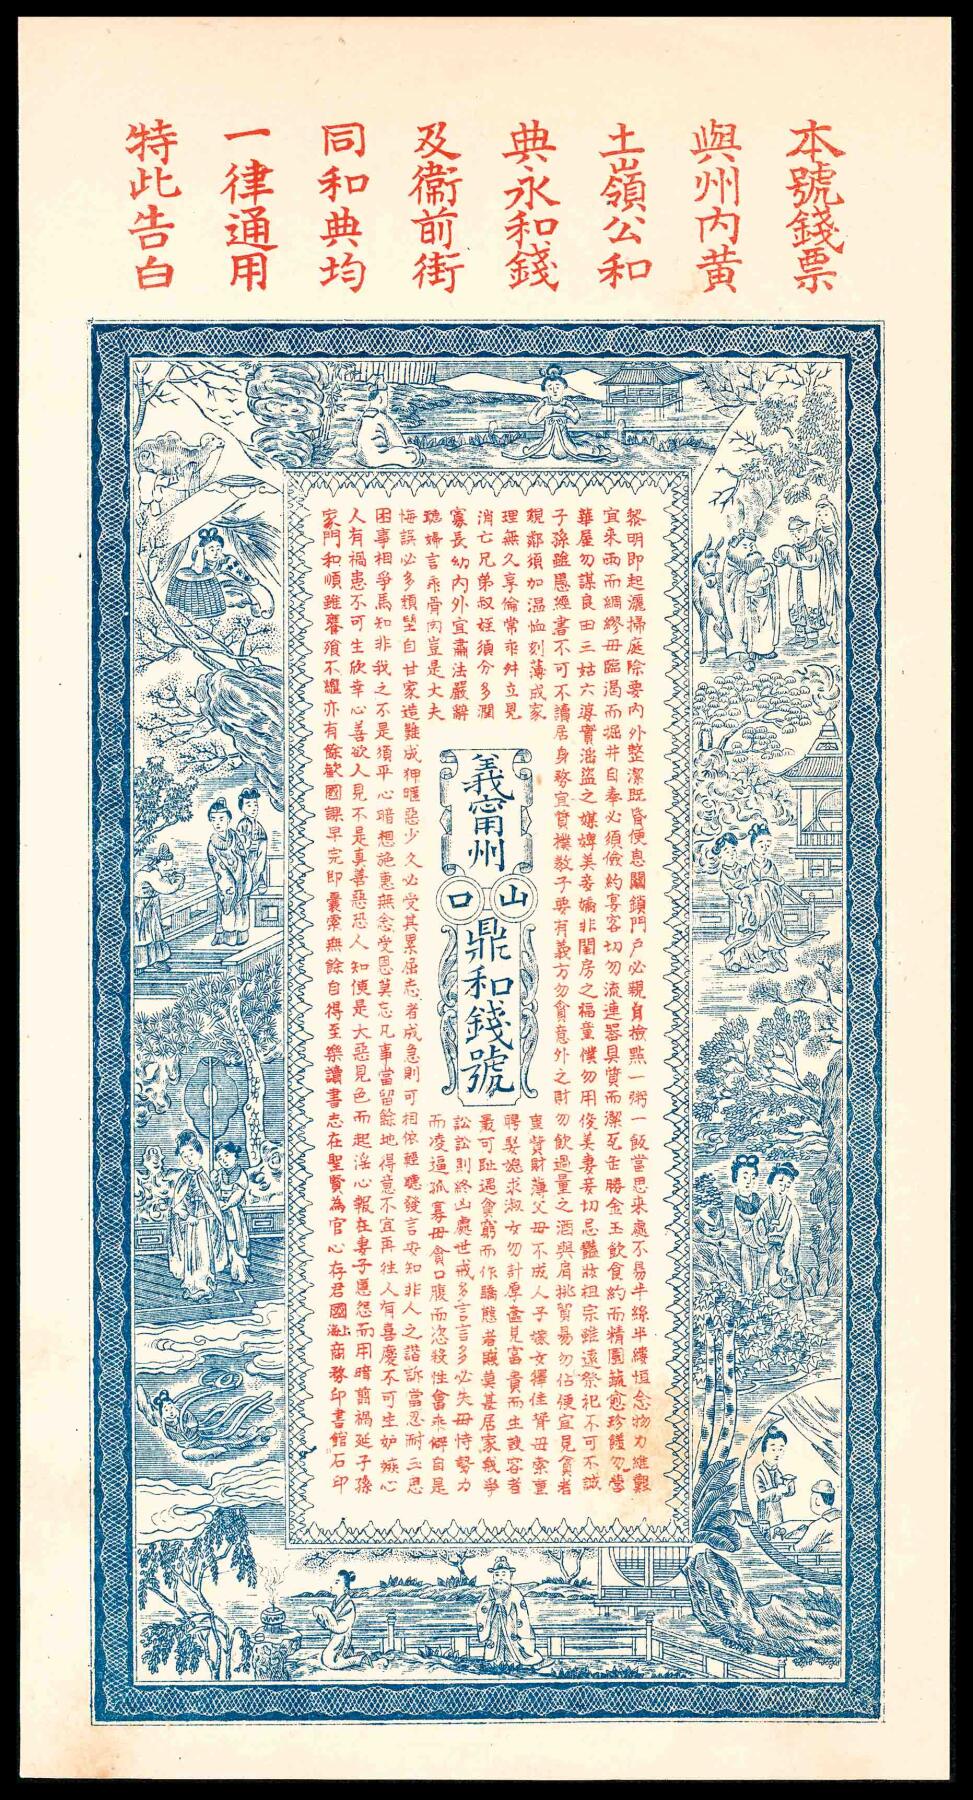 本號錢票
與州內黃
土嶺公和
典永和錢
及衞前街
同和典均
一律通用
特此告白
黎明即起灑掃庭除要內外整潔既昏便息關鎖門戶必親自檢點一粥一飯當思來處不易半絲半縷恒念物力維艱
宜未雨而綢繆毋臨渴而掘井自奉必須儉約宴客切勿流連器具質而潔瓦缶勝金玉飲食約而精園蔬愈珍饈勿營
華屋勿謀良田三姑六婆實淫盜之媒婢美妾嬌非閨房之福童僕勿用俊美妻妾切忌豔妝祖宗雖遠祭祀不可不誠
子孫雖愚經書不可不讀居身務宜質樸教子要有義方勿貪意外之財勿飲過量之酒與肩挑貿易勿佔便宜見貧者
親鄰須加溫恤刻薄成家
理無久享倫常乖舛立見
消亡兄弟叔姪須分多潤
寡長幼內外宜肅法嚴辭
聽婦言乖骨肉豈是大夫
義甯州
山口
鼎和錢號
重貲財薄父母不成人子嫁女擇佳壻毋索重
聘娶媳求淑女勿計厚奩見富貴而生諛容者
最可恥遇貧窮而作驕態者賤莫甚居家戒爭
訟訟則終凶處世戒多言言多必失毋恃勢力
而凌逼孤寡毋貪口腹而恣殺牲禽乖僻自是
悔誤必多頹墮自甘家道難成狎暱惡少久必受其累屈志老成急則可相依輕聽發言安知非人之譖訴當忍耐三思
因事相爭焉知非我之不是須平心暗想施惠無念受恩莫忘凡事當留餘地得意不宜再往人有喜慶不可生妒嫉心
人有禍患不可生欣幸心善欲人見不是真善惡恐人知便是大惡見色而起淫心報在妻子匿怨而用暗箭禍延子孫
家門和順雖饔飧不繼亦有餘歡國課早完即囊橐無餘自得至樂讀書志在聖賢為官心存君國 上海商務印書館石印